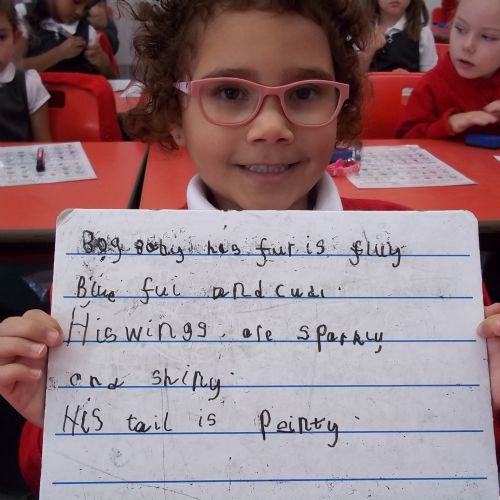 Bog baby his fur is fluy
Blue ful and cudl.
His wings are sparkly
and shiny.
His tail is peinty.